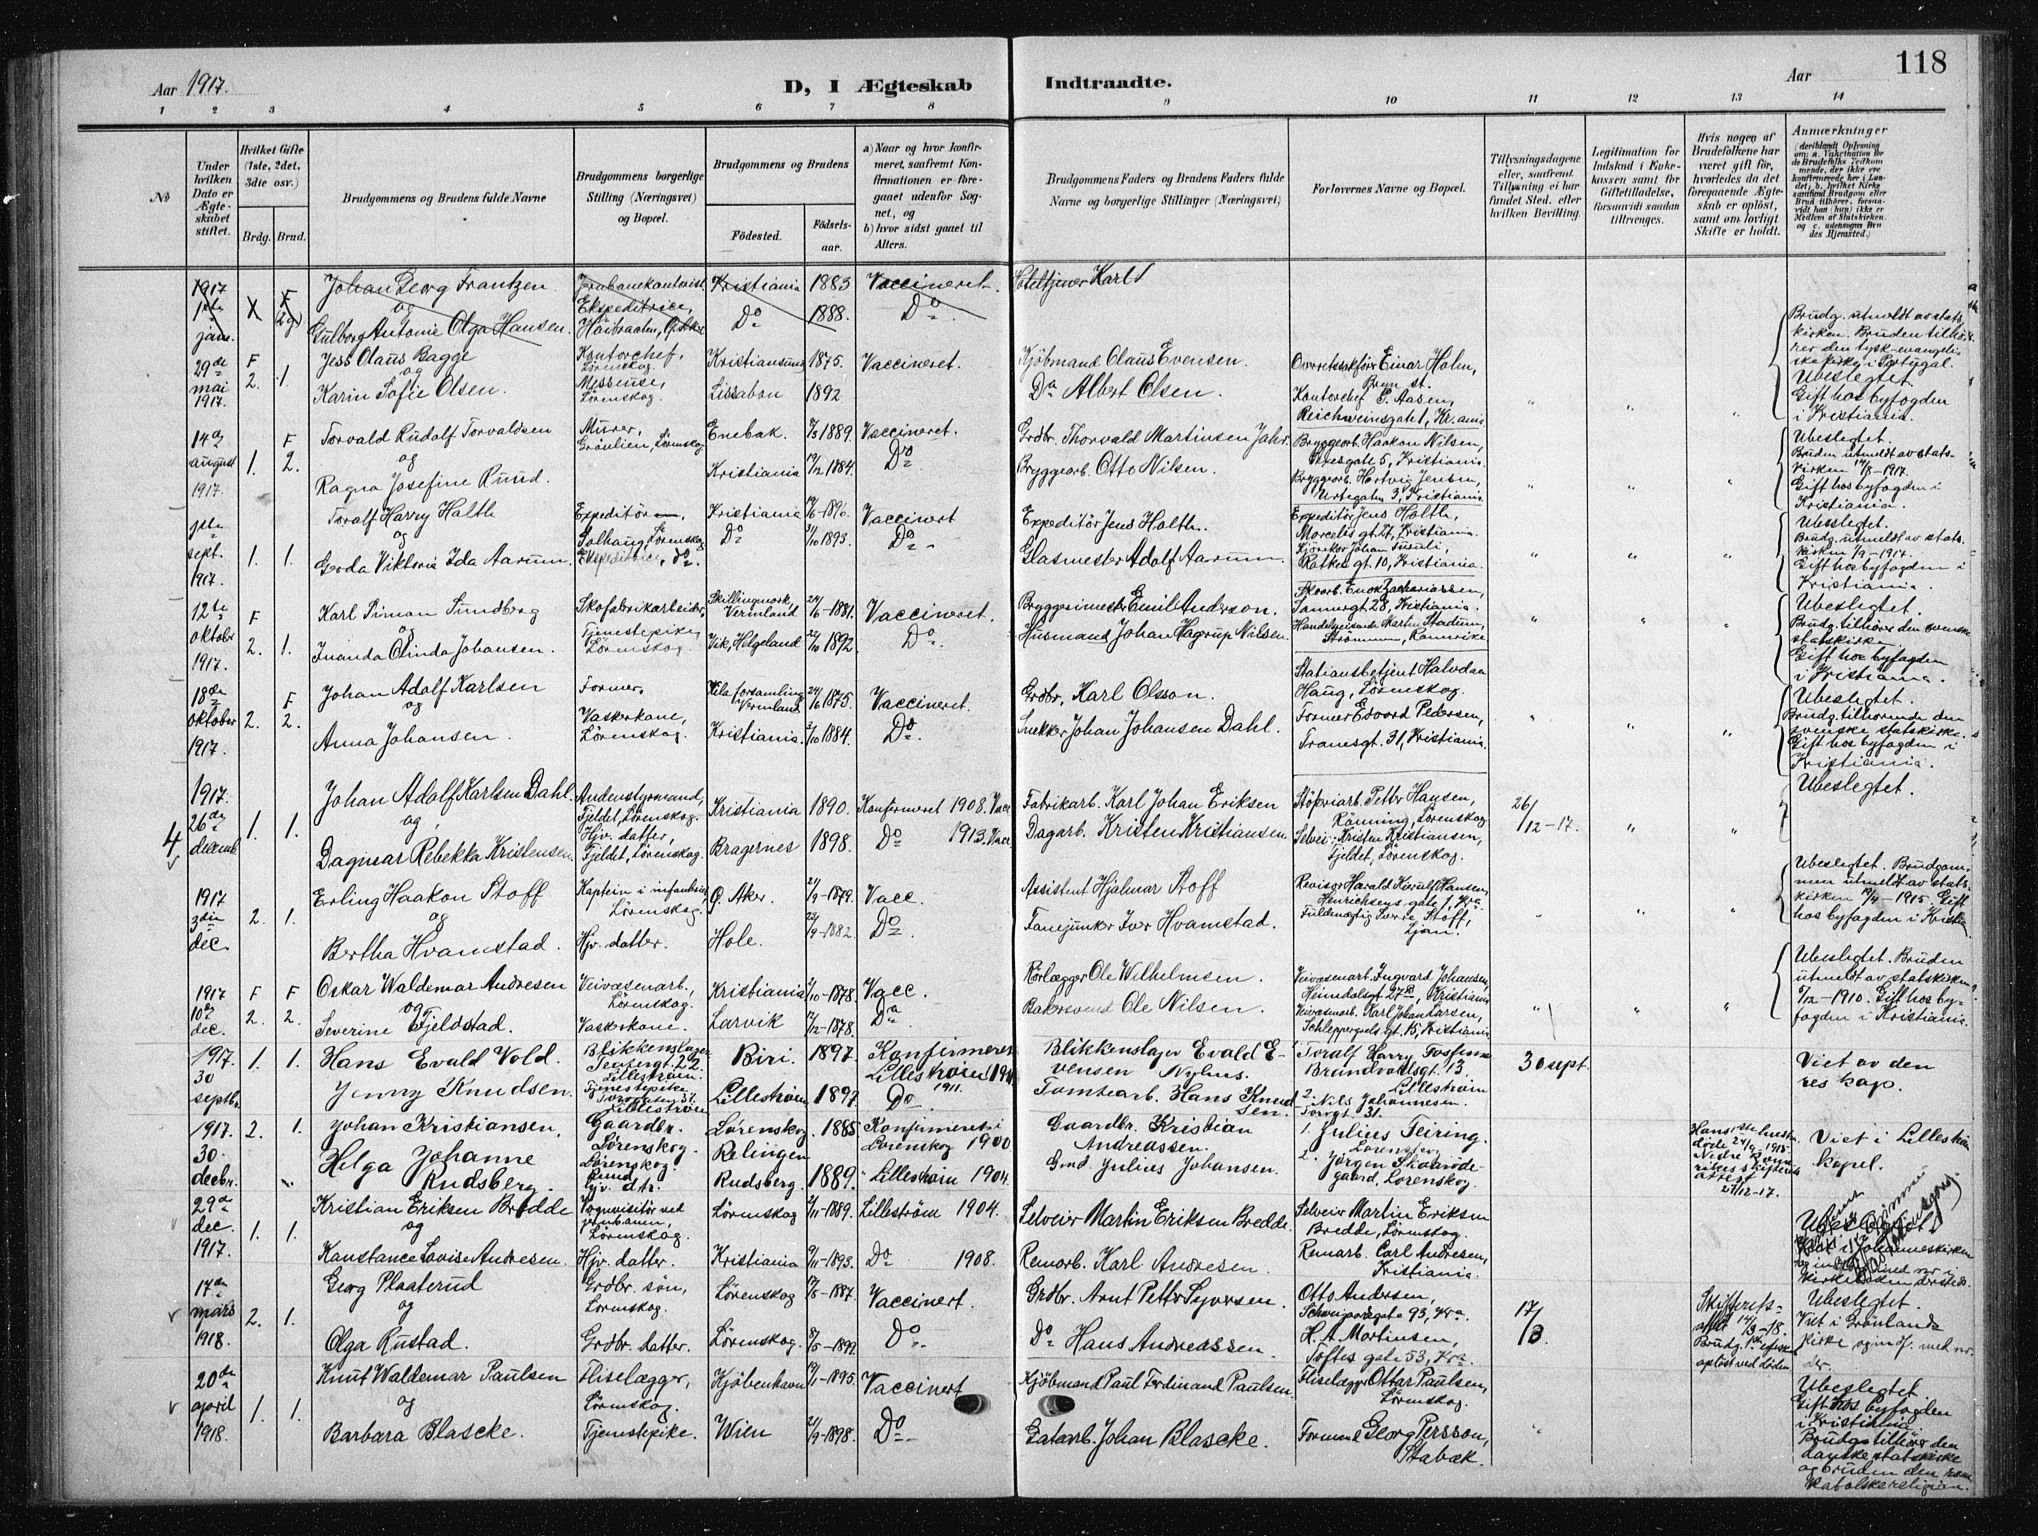 118
Aar 1917.
D, I Ægteskab Indtraadte.
Aar
1 2 3 4 5 6 7 8 9 10 11 12 13 14
No
Under hvilken Dato er Ægteskabet stiftet.
Hvilket Gifte (1ste, 2det, 3die osv.)
Brdg. Brud.
Brudgommens og Brudens fulde Navne
Brudgommens borgerlige Stilling (Næringsvei) og Bopæl.
Brudgommens og Brudens
Fødested. Fødselsaar.
a) Naar og hvor konfirmeret, saafremt Konfirmationen er foregaaet udenfor Sognet, og
b) hvor sidst gaaet til Alters.
Brudgommens Faders og Brudens Faders fulde Navne og borgerlige Stillinger (Næringsvei)
Forlovernes Navne og Bopæl.
Tillysningsdagene eller, saafremt Tillysning ei har fundet Sted, efter hvilken Bevilling.
Legitimation for Indskud i Enkekassen samt for Giftetilladelse, forsaavidt saadan tiltrænges.
Hvis nogen af Brudefolkene har været gift før, hvorledes da det foregaaende Ægteskab er opløst, samt om lovligt Skifte er holdt.
Anmærkninger
1917 1ste jan. X Johan Georg Frantzen Jernbanekontorist Kristiania 1883 Vaccineret. Hoteltjener Karl
og Ekspeditrice,
Gulborg Antonie Olga Hansen. Do 1888. Do
29de mai 1917. F 2. 1. Jess Olaus Bagge Kontorchef, Lørenskog Kristiansund 1875. Vaccineret. Kjøbmand Olaus Evensen. Overretssakfører Einar Holm, Bryn st.
og
Karin Sofie Olsen. Messeuse, Lørenskog. Lissabon 1892 Do Albert Olsen. Kontorchef S. Aasen, Reichweinsgate 1, Kr.ania
Brudg. utmeldt av statskirken. Bruden tilhører den tysk-evangeliske kirke i Portugal. Ubeslegtet. Gift hos byfogden i Kristiania.
14de august 1917. 1. F 2. Torvald Rudolf Torvaldsen Murer, Lørenskog Enebak. 1889. Vaccineret. Grdbr. Thorvald Martinsen Jahr. Bryggearb. Haakon Nilsen, Kristiania
og
Ragna Josefine Ruud. Kristiania 1884. Do Bryggearb. Otto Nilsen. Bryggearb. Hartvig Jensen, Urtegaten 3, Kristiania
Ubeslegtet. Bruden utmeldt av statskirken 14/8-1917. Gift hos byfogden i Kristiania.
1ste sept. 1917. 1. 1. Toralf Harry Holth Expeditör, Solhaug, Lörenskog Kristiania 1890. Vaccinert Expeditör Jens Holth. Expeditør Jens Holth, Marcelis gt. 27, Kristiania.
og
Gerda Viktoria Ida Aarum. Ekspeditrice, do. Do 31/10 1893. Do Glasmester Adolf Aarum. Kjørekar Johan, Ratkes gt. 10, Kristiania.
Ubeslegtet. Brudg. utmeldt av statskirken 1/9-1917. Gift hos byfogden i Kristiania.
12te oktober 1917. F 2. 1. Karl Simon Sundberg Skofabrikarbeider, Skillingmark, Vermland 24/6-1881. Vaccineret. Bryggerimester Emil Anderson. Skoarb. Enok Zachariassen, Tannergt 28, Kristiania.
og
Inanda Olinda Johansen. Tjenestepike, Lörenskog. Vik, Helgeland 1892 Do Husmand Johan Hagrup Nilsen. Handelsreisende Martin Stadum, Strømmen, Romerike
Ubeslegtet. Brudg. tilhører den svenske statskirke. Gift hos byfogden i Kristiania.
18de oktober 1917. 2. F 2. Johan Adolf Karlsen Former, Vermland 24/6 1875. Vaccineret. Grdbr. Karl Olsson. Stationsbetjent Halvdan Haug, Lørenskog.
og
Anna Johansen. Vaskerkone, Lørenskog. Kristiania. 3/10 1884. Do Snekker Johan Johansen Dahl. Former Edvard Pedersen, Tranesgt. 31, Kristiania.
Ubeslegtet. Brudg. tilhørende den svenske statskirke. Gift hos byfogden i Kristiania.
4 1917. 26de decemb. 1. 1. Johan Adolf Karlsen Dahl. Andenstyrmand, Fjeldet, Lörenskog. Kristiania 1890. Konfirmeret 1908. Vacc. Fabrikarb. Karl Johan Eriksen Støperiarb. Petter Hansen, Rönning, Lørenskog 26/12-17. Ubeslegtet.
og
Dagmar Rebekka Kristensen Hjv. datter, Fjeldet, Lørenskog. Bragernes 1898. Do 1913. Vacc. Dagarb. Kristen Kristiansen. Selveier Kristen Kristiansen, Fjeldet, Lörenskog.
1917 3die dec. 2. 1. Erling Haakon Stoff Kaptein i infanteriet, Lørenskog. Ø. Aker. 1879. Vacc. Assistent Hjalmar Stoff Revisor Harald Kierulf Hansen, Henrichsens gate 1, Kra
og
Bertha Hvamstad. Hjv. datter. Hole. 1882. Do Fanejunker Iver Hvamstad. Fuldmægtig Sverre Stoff, Ljan.
Ubeslegtet. Brudgommen utmeldt av statskirken 19/4-1915. Gift hos byfogden i Kristiania
1917 10de dec. F 2. F 2. Oskar Waldemar Andresen Veivæsenarb., Lørenskog. Kristiania 1878. Vacc. Rörlægger Ole Wilhelmsen. Veivæsenarb. Ingvard Johansen, Heimdalsgt 27, Kristiania
og
Severine Fjeldstad. Vaskerkone. Larvik 1878. Do Bakersvend Ole Nilsen. Veivæsenarb. Karl Johan Larsen, Schleppegrels gt. 15, Kristiania.
Ubeslegtet. Bruden utmeldt av statskirken 6/12-1910. Gift hos byfogden i Kristiania.
1917. 30 septbr. 1. 1. Hans Evald Vold. Blikkenslager Teatergt. 22 Lillestrøm. Biri. 1897. Konfirmeret Lillestrøm 1911 Blikkenslager Evald Evensen Nyhus. Toralf Harry Brandvoldsgt. 13. Lillestrøm 30 sept. Viet av den res. kap.
Jenny Knudsen. Tjenestepike Lillestrøm Lillestrøm 1897 Do 1911. Tomtearb. Hans Knudsen. 2. Nils Johannesen. Torvgt 31.
1917. 30. decbr. 2. 1. Johan Kristiansen. Gaardbr. Lørenskog. Lørenskog. 1885 Konfirmeret i Lørenskog 1900 Gaardbr. Kristian Andreassen. 1. Julius Feiring. Lørenskog Viet i Lillestrøm kapel.
Helga Johanne Rudsberg. Lørenskog gv. dtr. Rælingen Rudsberg. 1889. Lillestrøm 1904. Gmd. Julius Johansen. 2. Jørgen Skaarødegaard, Lørenskog.
Hans 1ste hustru døde 24/9 1915. Nedre Romerikes skifteretsattest 27/12-17.
29de dec. 1917. 1. 1. Kristian Eriksen Brodde Vognvisitör ved jernbanen, Lørenskog. Lørenskog 1889. Lilleström 1904. Selveier Martin Eriksen Bredde. Selveier Martin Eriksen Bredde, Lørenskog. Ubeslegtet.
og
Konstance Lovise Andresen. Hjv. datter. Kristiania 1893. Do 1908. Remarb. Karl Andresen. Remarb. Carl Andresen, Kristiania.
Viet i Johanneskirken
17de mars 1918. 2. 1. Georg Plaaterud Grdbr. søn, Lørenskog. Lørenskog 1887. Vaccinert. Grdbr. Arnt Petter Syversen. Otto Andersen, Schweigaardsgate 93, Kra 17/3
og
Olga Rustad. Grdbr. datter. Lørenskog. 8/5-1892 Do. Do Hans Andreassen. H. A. Martinsen, Toftes gate 53, Kra.
Skifteretsatt. 14/3-18. Brudg. 1ste egteskap opløst ved døden
Ubeslegtet. Viet i Grønlands kirke og indf. med nr. der.
20de april 1918. 1. 1. Knut Waldemar Paulsen Fliselægger, Lørenskog. Kjøbenhavn 1895. Vaccinert Kjøbmand Paul Ferdinand Paulsen. Fliselægger Ottar Paulsen, Lørenskog.
og
Barbara Blascke. Tjenestepike. Wien 21/9-1898. Do Gatearb. Johan Blascke. Former Georg Persson, Stabæk.
Ubeslegtet. Gift hos byfogden i Kristiania. Brudg. tilhører den danske statskirke og bruden den rom. katolske religion.